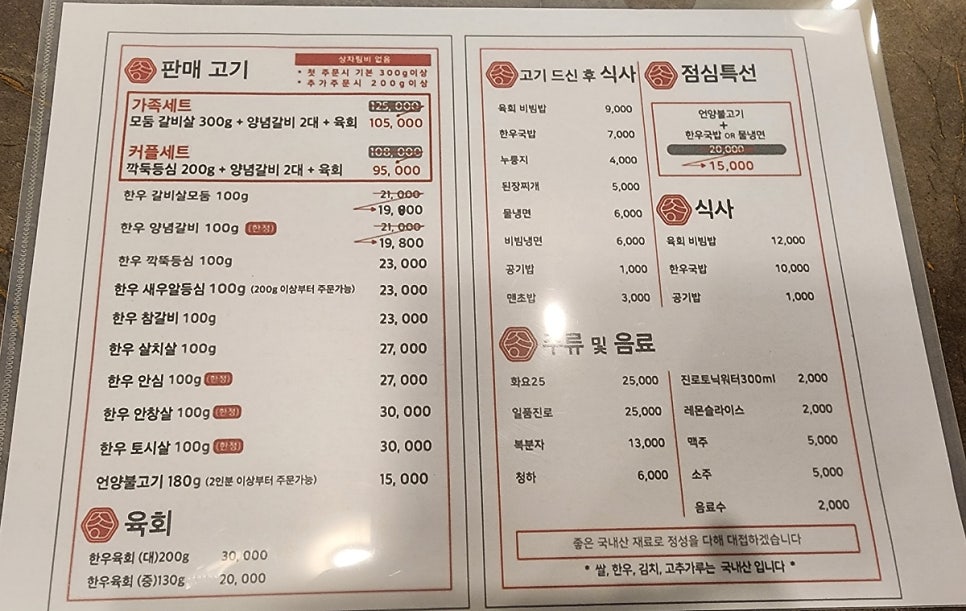 판매 고기
상차림비 없음
* 첫 주문시 기본 300g이상
* 추가주문시 200g이상
가족세트 125,000
모둠 갈비살 300g + 양념갈비 2대 + 육회 105,000
커플세트 108,000
깍둑등심 200g + 양념갈비 2대 + 육회 95,000
한우 갈비살모둠 100g 21,000
19,800
한우 양념갈비 100g (한정) 21,000
19,800
한우 깍뚝등심 100g 23,000
한우 새우알등심 100g (200g 이상부터 주문가능) 23,000
한우 참갈비 100g 23,000
한우 살치살 100g 27,000
한우 안심 100g (한정) 27,000
한우 안창살 100g (한정) 30,000
한우 토시살 100g (한정) 30,000
언양불고기 180g (2인분 이상부터 주문가능) 15,000
육회
한우육회 (대)200g 30,000
한우육회 (중)130g 20,000
고기 드신 후 식사
육회 비빔밥 9,000
한우국밥 7,000
누룽지 4,000
된장찌개 5,000
물냉면 6,000
비빔냉면 6,000
공기밥 1,000
맨초밥 3,000
점심특선
언양불고기
+
한우국밥 OR 물냉면
20,000
15,000
식사
육회 비빔밥 12,000
한우국밥 10,000
공기밥 1,000
주류 및 음료
화요25 25,000
일품진로 25,000
복분자 13,000
청하 6,000
진로토닉워터300ml 2,000
레몬슬라이스 2,000
맥주 5,000
소주 5,000
음료수 2,000
좋은 국내산 재료로 정성을 다해 대접하겠습니다
* 쌀, 한우, 김치, 고추가루는 국내산 입니다 *